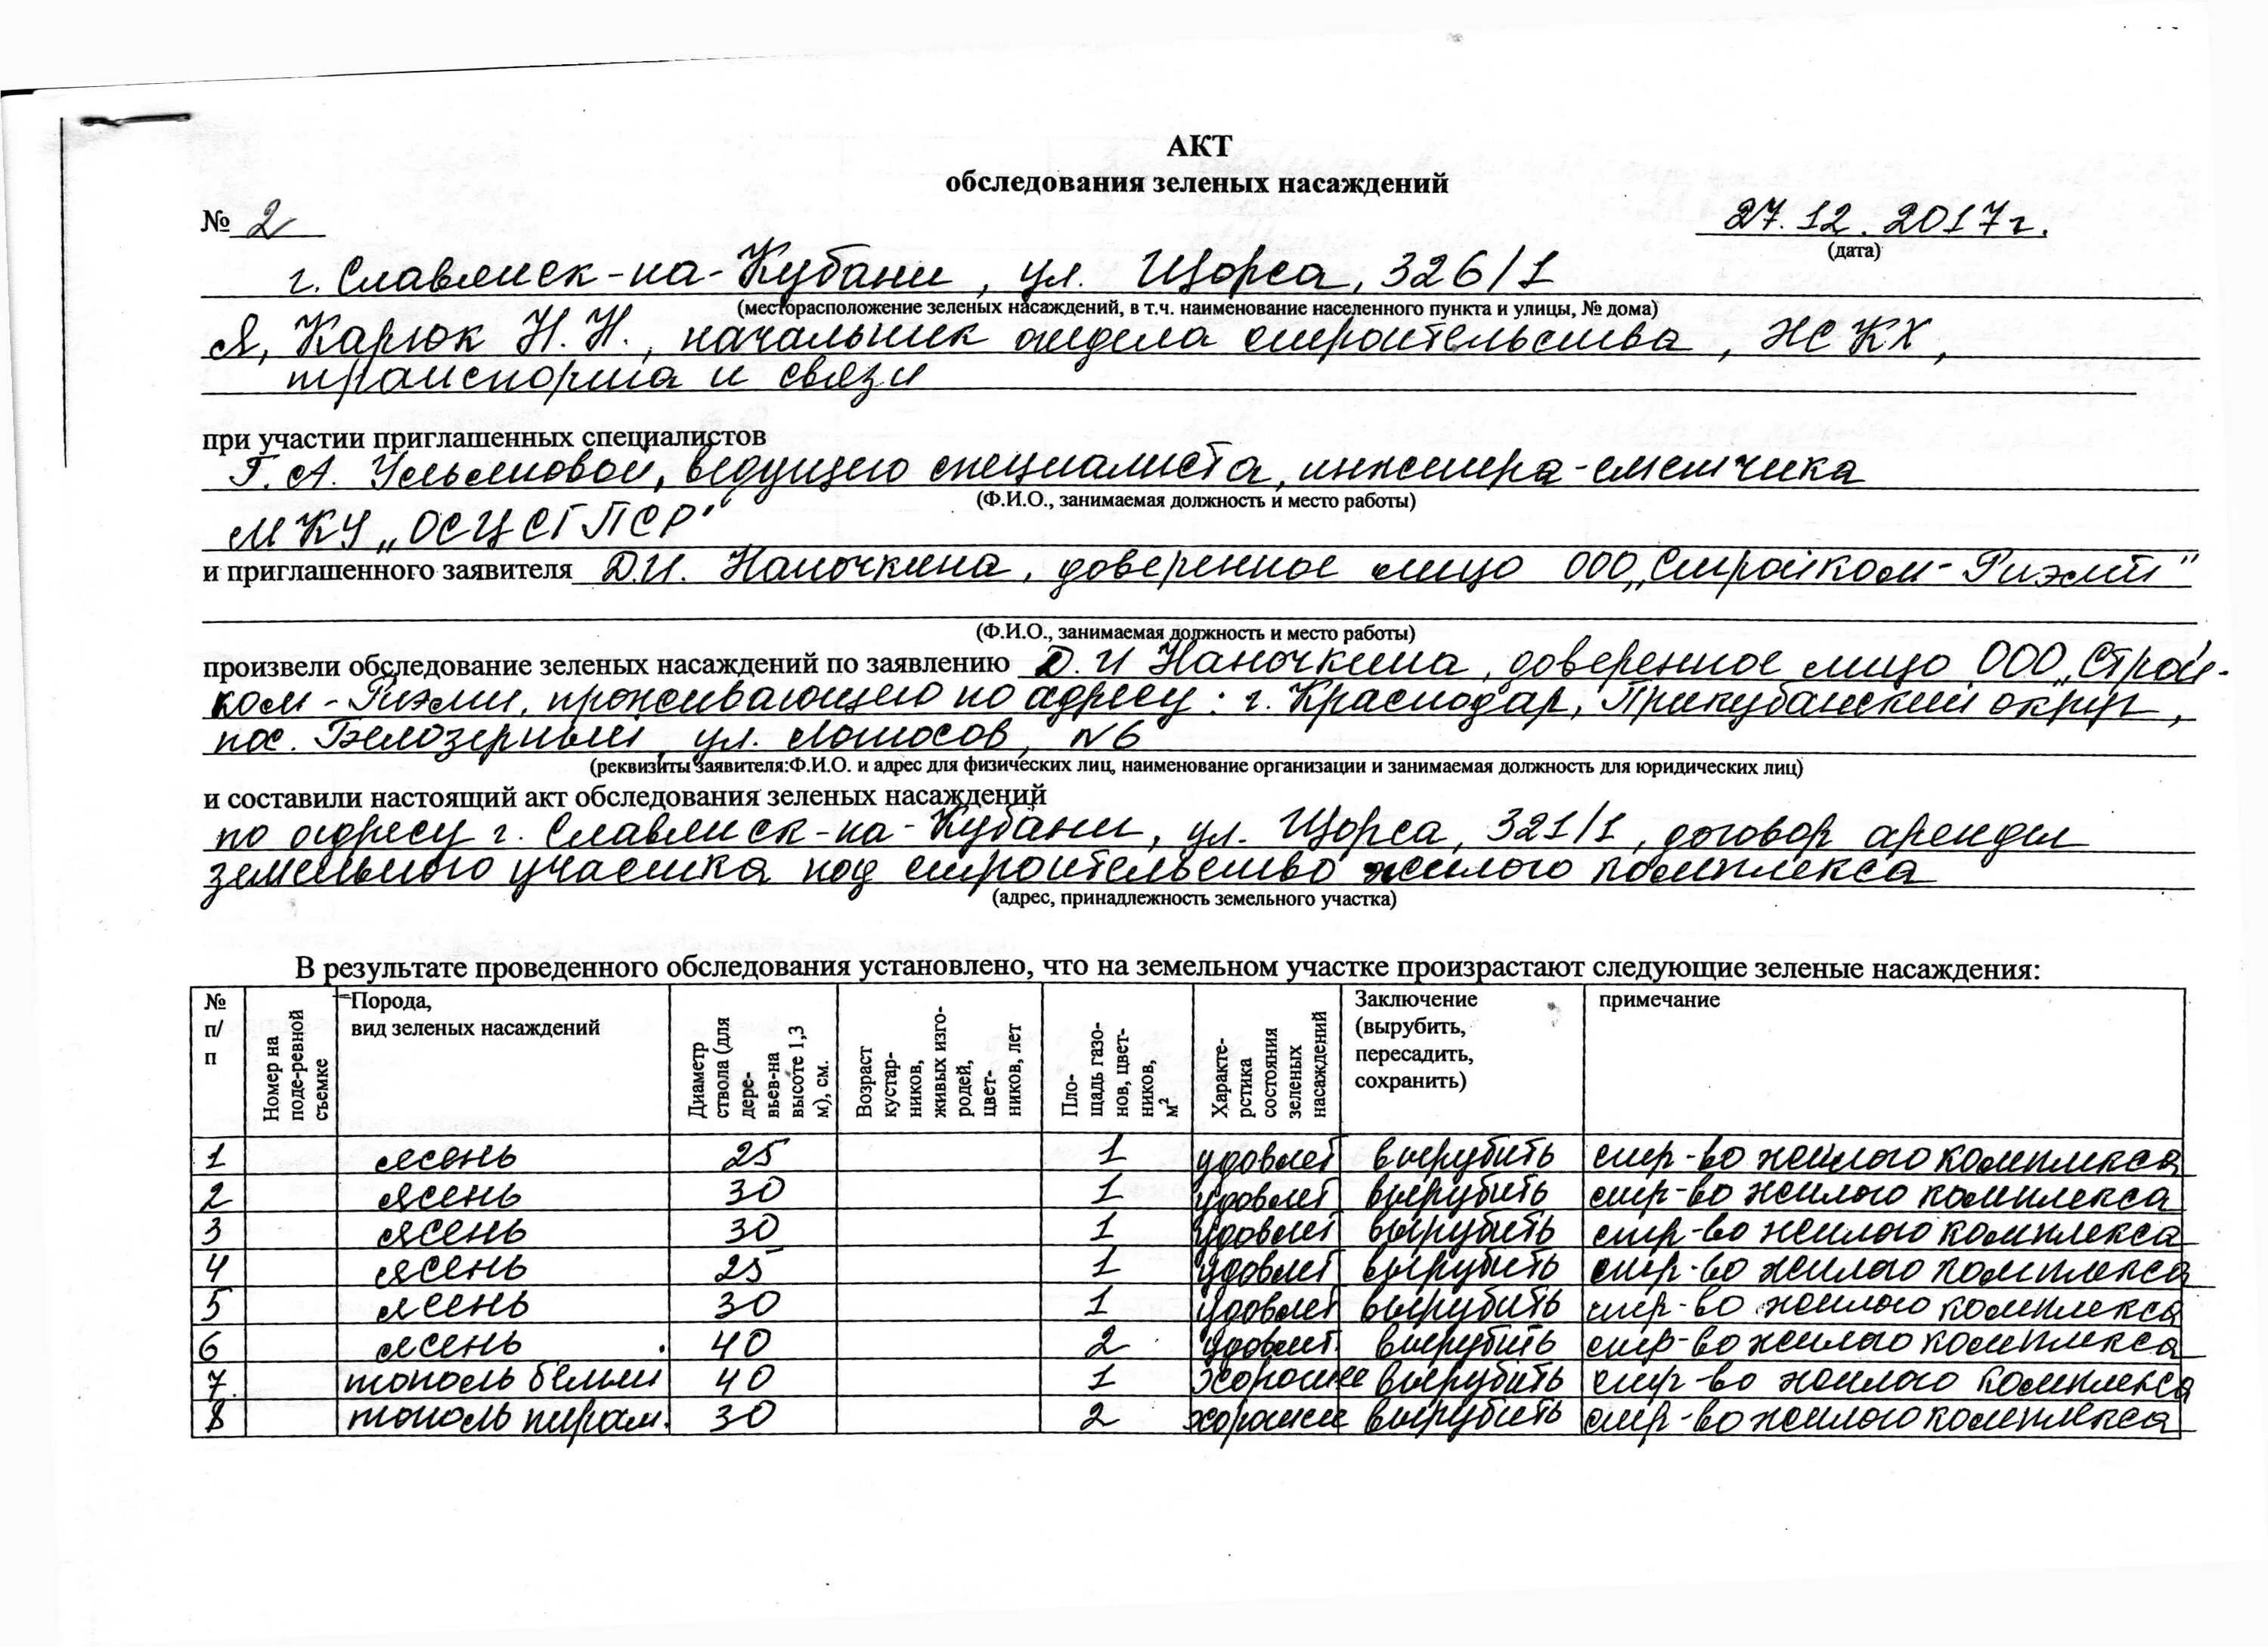 АКТ
обследования зеленых насаждений
№ 2
27.12.2017г.
(дата)
г. Славянск-на-Кубани, ул. Щорса, 326/1
(месторасположение зеленых насаждений, в т.ч. наименование населенного пункта и улицы, № дома)
Я, Карюк Н.Н., начальник отдела строительства, ЖКХ,
транспорта и связи
при участии приглашенных специалистов
Г.А. Ульяновой, ведущего специалиста, инженера-сметчика
(Ф.И.О., занимаемая должность и место работы)
МКУ „ОСЦСГПСР"
и приглашенного заявителя Д.И. Наночкина, доверенное лицо ООО „Стройком-Риэлти"
(Ф.И.О., занимаемая должность и место работы)
произвели обследование зеленых насаждений по заявлению Д.И Наночкина, доверенное лицо ООО „Строй-
ком-Риэлти, проживающего по адресу: г. Краснодар, Прикубанский округ,
пос. Белозерный, ул. Лотосов, №6
(реквизиты заявителя:Ф.И.О. и адрес для физических лиц, наименование организации и занимаемая должность для юридических лиц)
и составили настоящий акт обследования зеленых насаждений
по адресу г. Славянск-на-Кубани, ул. Щорса, 321/1, договор аренды
земельного участка под строительство жилого комплекса
(адрес, принадлежность земельного участка)
В результате проведенного обследования установлено, что на земельном участке произрастают следующие зеленые насаждения:
№ п/п Номер на поде-ревной съемке Порода, вид зеленых насаждений Диаметр ствола (для дере-вьев-на высоте 1,3 м), см. Возраст кустар-ников, живых изго-родей, цвет-ников, лет Пло-щадь газо-нов, цвет-ников, м² Характе-рстика состояния зеленых насаждений Заключение (вырубить, пересадить, сохранить) примечание
1 ясень 25 1 удовлет вырубить стр-во жилого комплекса
2 ясень 30 1 удовлет вырубить стр-во жилого комплекса
3 ясень 30 1 удовлет вырубить стр-во жилого комплекса
4 ясень 25 1 удовлет вырубить стр-во жилого комплекса
5 ясень 30 1 удовлет вырубить стр-во жилого комплекса
6 ясень 40 2 удовлет. вырубить стр-во жилого комплекса
7 тополь белый 40 1 хорошее вырубить стр-во жилого комплекса
8 тополь пирам. 30 2 хорошее вырубить стр-во жилого комплекса